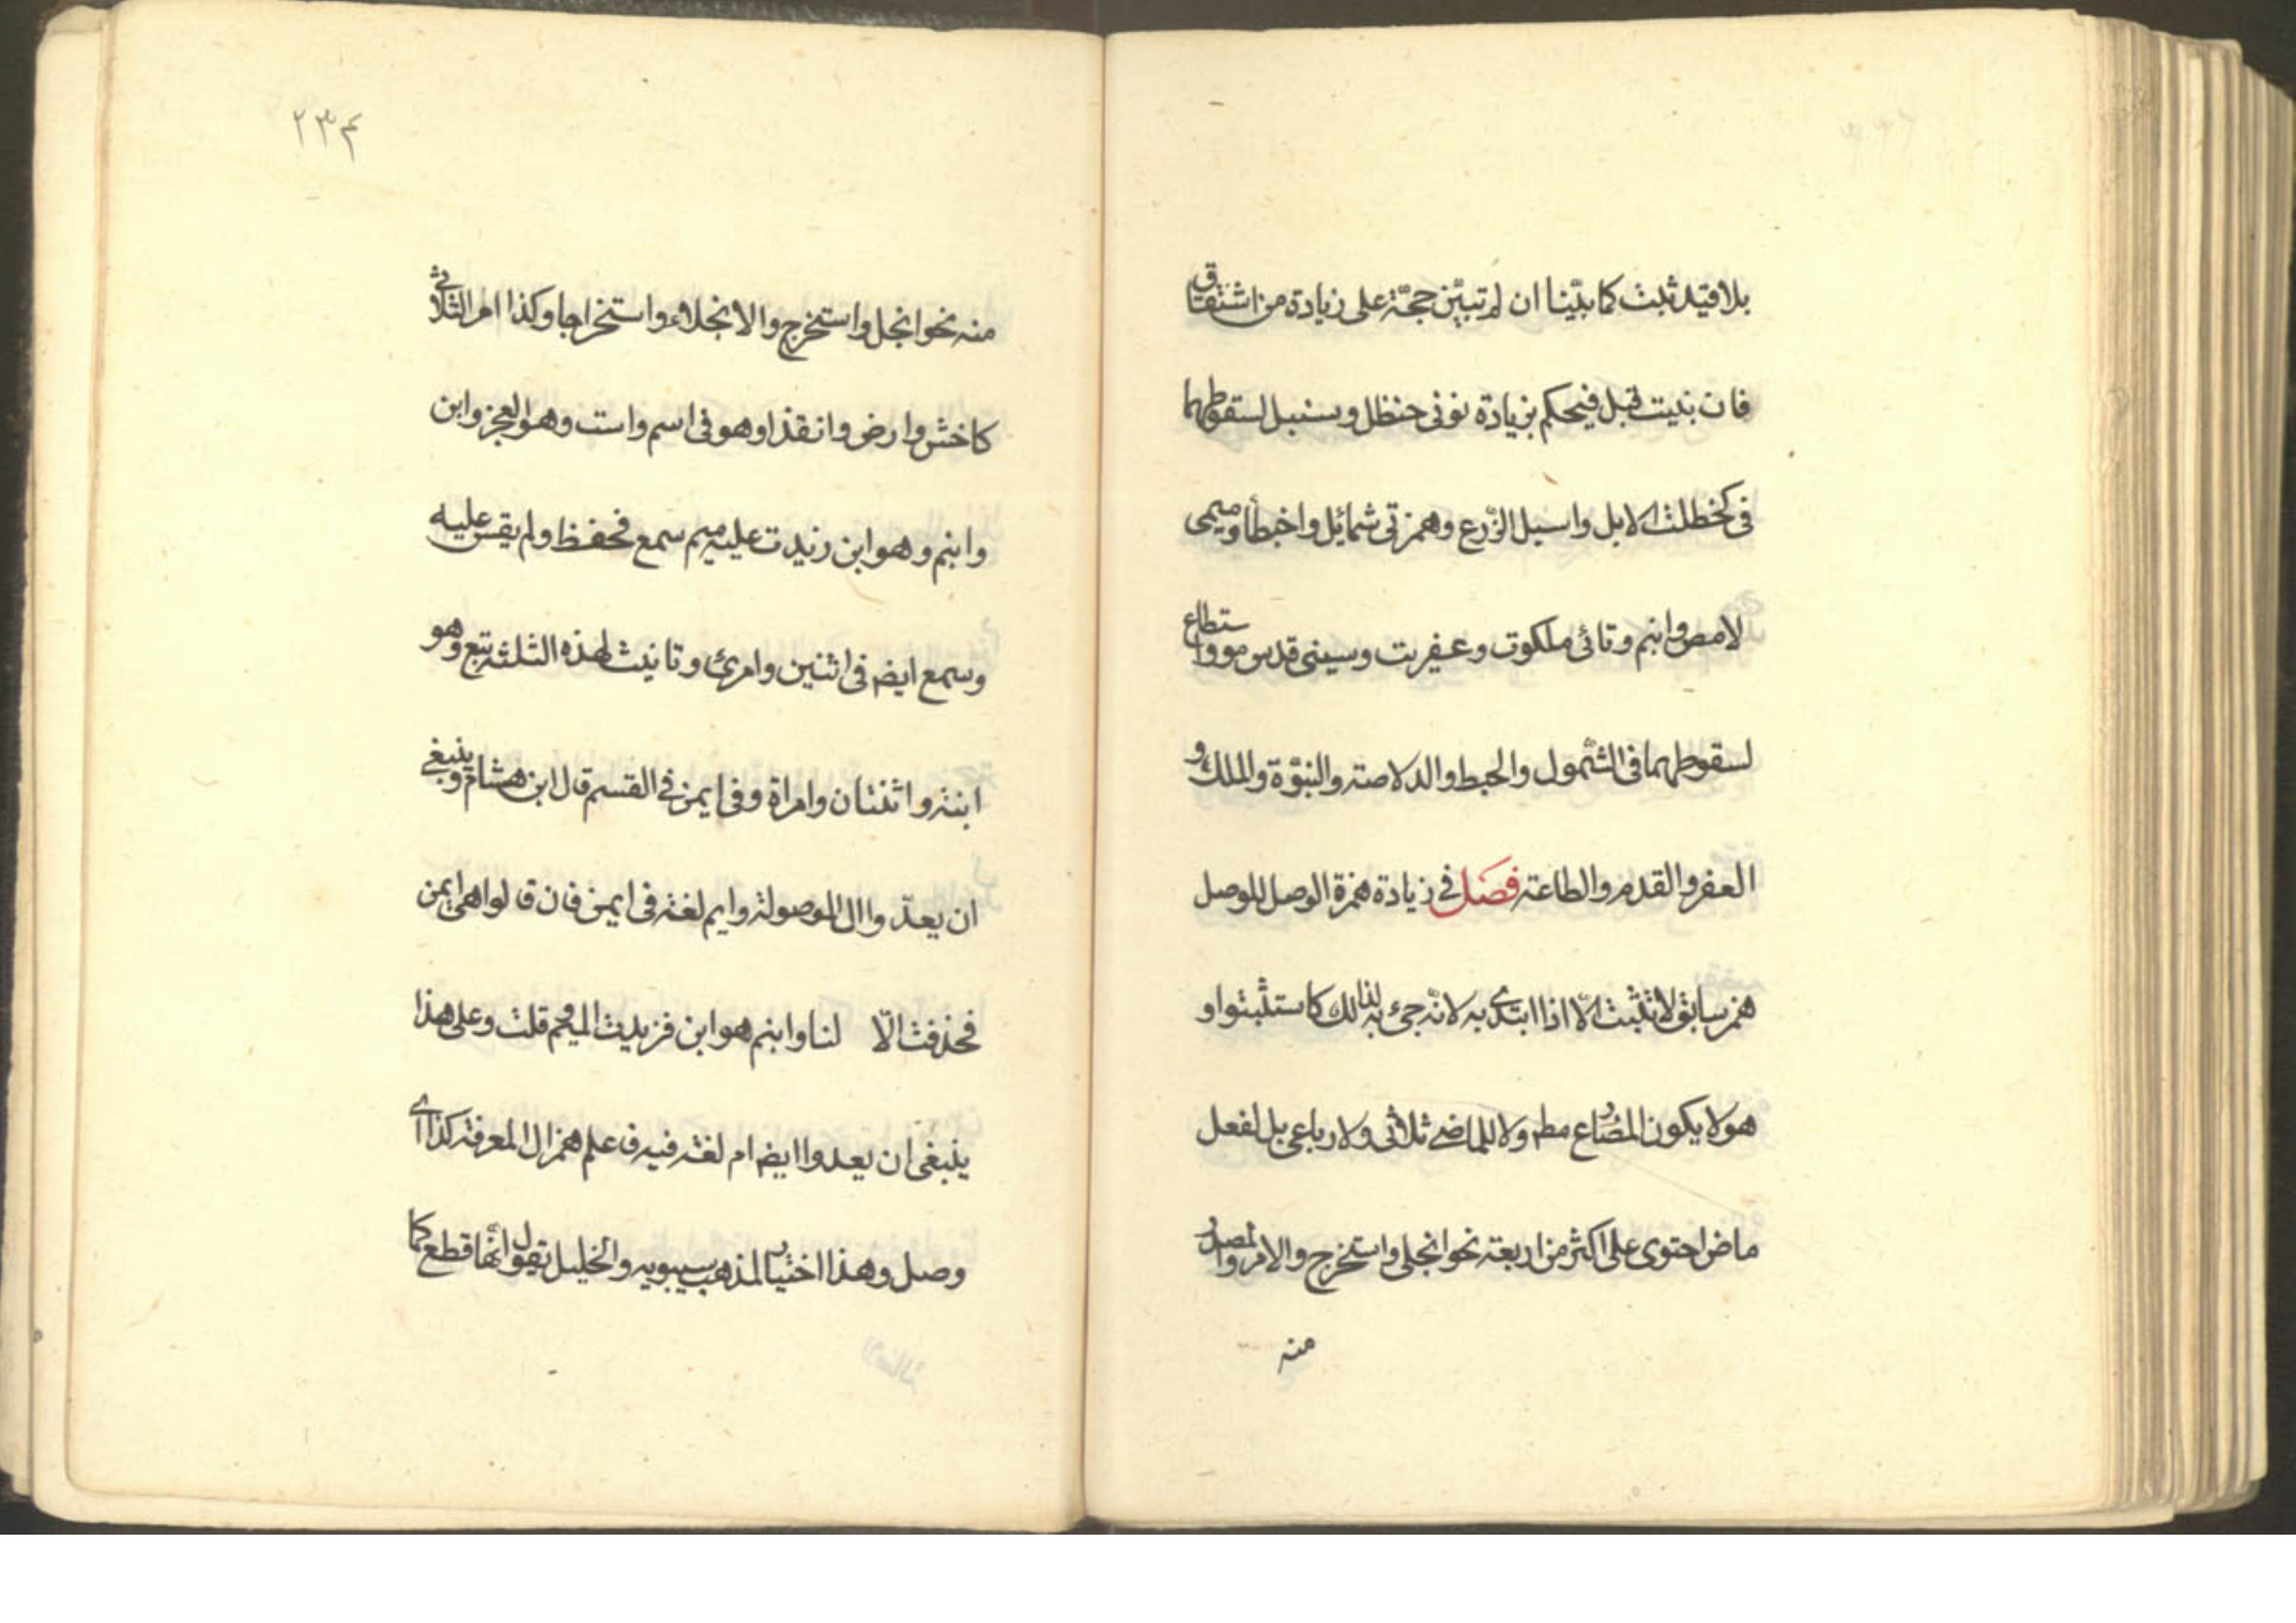 بلا قید ثبت كما بیّنا ان لم تبیّن حجّة على زیادة من اشتقاق
فان بنیت قبل فیحكم بزیادة نونی حنظل وسنبل لسقوطهما
فی كخطلت الابل واسبل الزرع وهمزتی شمائل واخبطأ ومیمی
لامص وابنم وتائی ملكوت وعفریت وسینی قدموس واستطاع
لسقوطهما فی الشّمول والحبط والدلاصة والبنوّة والملك و
العفر والقدم والطاعة فصل فی زیادة همزة الوصل للوصل
همز سابق لا تثبت الّا اذا ابتدی به لانّه جیء به لذالك كاستثبتوا و
هو لا یكون المضارع مطم ولا للماضی ثلاثی ولا رباعی بل لفعل
ماض احتوى على اكثر من اربعة نحو انجلی واستخرج والامر والمصدر
منه
۲۳۴
منه نحو انجل واستخرج والانجلاء واستخراجا وكذا امر الثلاثی
كاخش وارض وانقذا وهو فی اسم واست وهو العجز وابن
وابنم وهو ابن زیدت علیه میم سمع فحفظ ولم یقس علیه
وسمع ایضم فی اثنین وامرئ وتانیث لهذه الثلثة تبع وهو
ابنة واثنتان وامراة وفی ایمن فی القسم قال ابن هشام وینبغی
ان یعدّوا ال الموصولة وایم لغة فی ایمن فان قالوا هی ایمن
فحذفت الّا لنا وابنم هو ابن فزیدت المیم قلت وعلى هذا
ینبغی ان یعدوا ایضم ام لغة فیه فاعلم همز ال المعرفة كذا ای
وصل وهذا اختیار لمذهب سیبویه والخلیل یقول انّها قطع كما